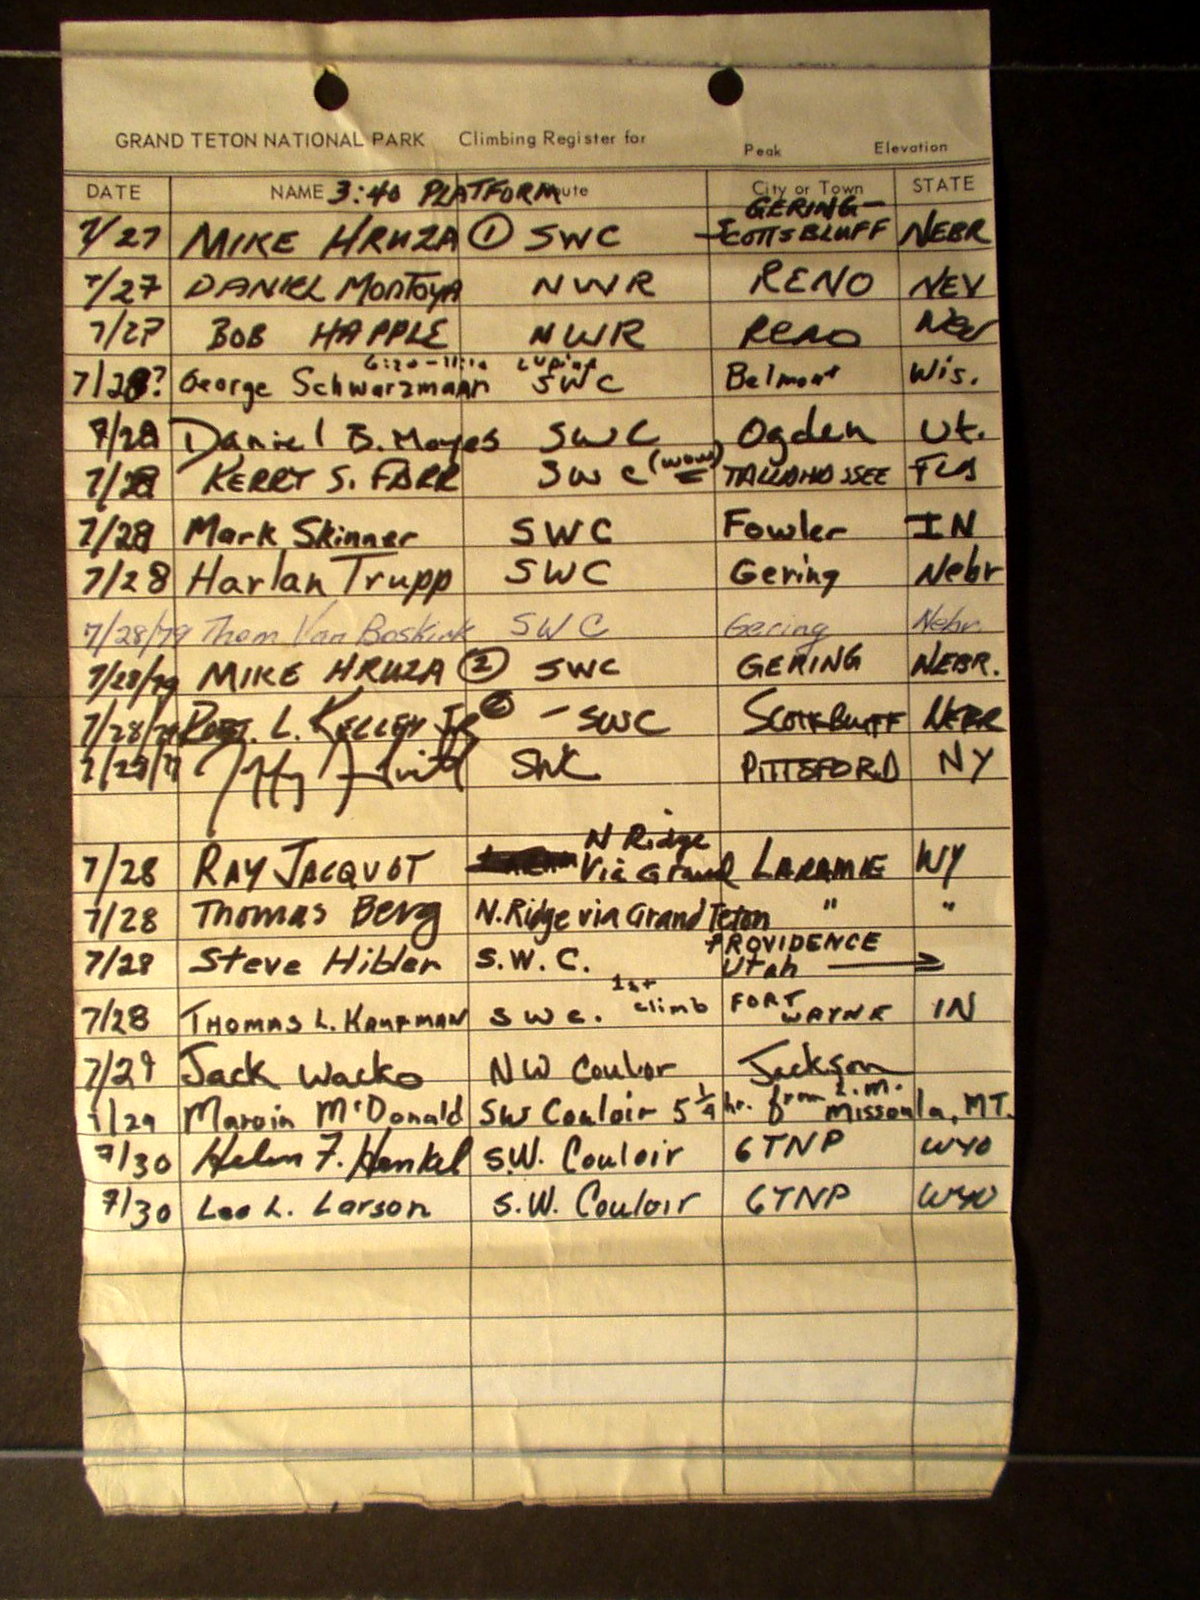 GRAND TETON NATIONAL PARK Climbing Register for Peak Elevation
DATE NAME 3:40 PLATFORM Route City or Town STATE
GERING-
7/27 MIKE HRUZA ① SWC SCOTTSBLUFF NEBR
7/27 DANIEL MONTOYA NWR RENO NEV
7/27 BOB HAPPLE NWR RENO Nev
6:20-11:10
7/28? George Schwarzmann SWC Belmont Wis.
7/28 Daniel B. Mayes SWC Ogden Ut.
7/28 KERRY S. FARR SWC (wow) TALLAHASSEE FLA
7/28 Mark Skinner SWC Fowler IN
7/28 Harlan Trupp SWC Gering Nebr
7/28/79 Thom Van Boskirk SWC Gering Nebr.
7/28/79 MIKE HRUZA ② SWC GERING NEBR.
7/28/79 ROBT. L. KELLEY JR - SWC SCOTTSBLUFF NEBR
SWC PITTSFORD NY
N Ridge
7/28 RAY JACQUOT Via Grand LARAMIE WY
7/28 Thomas Berg N. Ridge via Grand Teton " "
PROVIDENCE
7/28 Steve Hibler S.W.C. Utah →
1st
7/28 THOMAS L. KAUFMAN SWC. climb FORT WAYNE IN
7/29 Jack Wacko NW Couloir Jackson
7/29 Marvin McDonald SW Couloir 5 1/4 hr. from L.M. Missoula, MT.
7/30 Helen F. Henkel S.W. Couloir GTNP WYO
7/30 Leo L. Larson S.W. Couloir GTNP WYO